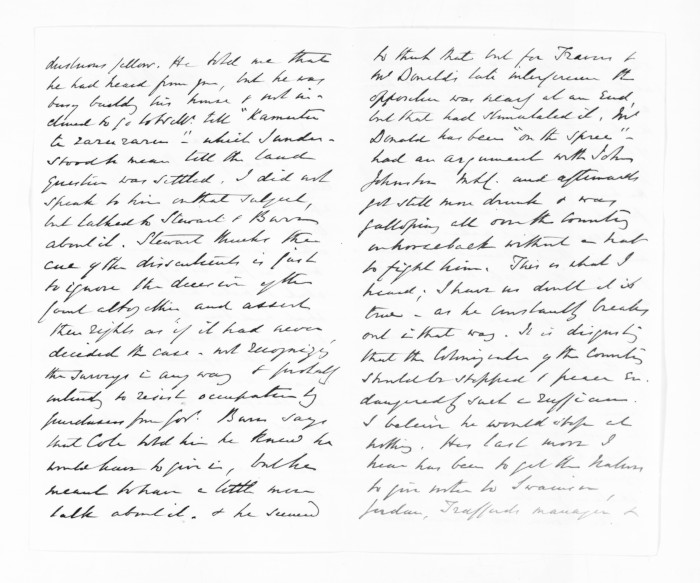 dustrious fellow. He told me that
he had heard from you, but he was
busy building his house & not in-
clined to go to till "Kamutu
te raruraru" - which I under-
stood to mean till the land
question was settled. I did not
speak to him on that subject,
but talked to Stewart & Burns
about it. Stewart thinks the
cue of the dissentients is just
to ignore the decision of the
Court altogether and assert
their rights as if it had never
decided the case - not recognizing
the surveys in any way & probably
intends to resist occupation by
purchasers from Govt. Burns says
that Cole told him he knew he
would have to give in, but he
meant to have a little more
talk about it. & he seemed
to think that but for Travers &
McDonald's late interference the
opposition was nearly at an End,
but that had stimulated it. Mc
Donald has been "on the spree" -
had an argument with John
Johnston MLC. and afterwards
got still more drunk & was
galloping all over the Country
on horseback without a hat
to fight him. This is what I
heard; I have no doubt it is
true - as he constantly breaks
out in that way. It is disgusting
that the Colonization of the Country
should be stopped & peace en-
dangered by such a ruffian.
I believe he would stop at
nothing. His last move I
hear has been to get the Natives
to give notice to Swainson,
Jordan, Trafford's manager &